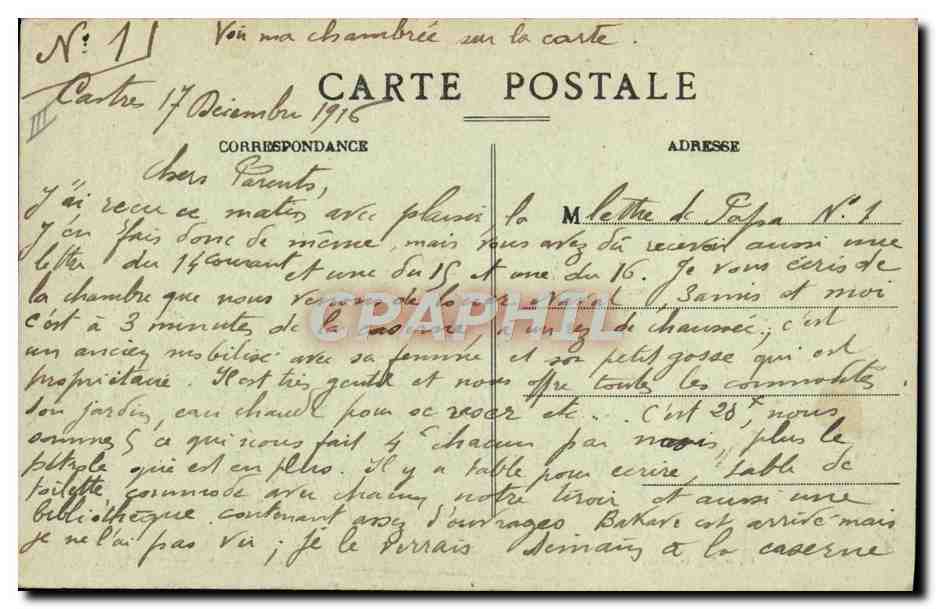 N° 1
Voir ma chambrée sur la carte.
CARTE POSTALE
Castres 17 Décembre 1916
III
CORRESPONDANCE
ADRESSE
Chers Parents,
J'ai reçu ce matin avec plaisir la M lettre de Papa N° 1
J'en fais donc de même, mais vous avez dû recevoir aussi une
lettre du 14 courant et une du 15 et une du 16. Je vous écris de
la chambre que nous venons de louer 3 amis et moi
c'est à 3 minutes de la caserne à un rez de chaussée, c'est
un ancien mobilisé avec sa femme et son petit gosse qui est
propriétaire. Il est très gentil et nous offre toutes les commodités.
son jardin, eau chaude pour se raser etc.. c'est 20f, nous
sommes 5 ce qui nous fait 4f chacun par mois, plus le
pétrole qui est en plus. Il y a table pour écrire, table de
toilette, commode avec chacun notre tiroir et aussi une
bibliothèque contenant assez d'ouvrages est arrivé mais
je ne l'ai pas vu ; je le verrais demain à la caserne
CPAPHIL